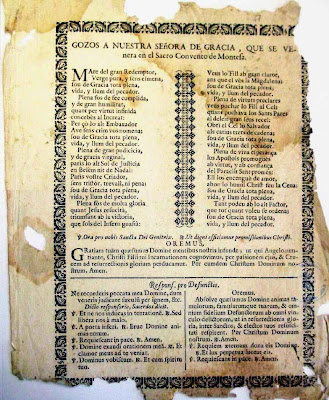 GOZOS A NUESTRA SEÑORA DE GRACIA, QUE SE VE-
nera en el Sacro Convento de Montesa.
MAre del gran Redemptor,
Verge pura, y sens
sou de Gracia tota plena,
vida, y llum del pecador.
Plena sou de fee cumplida,
y de gran humilitat,
quant per virtut infinida
concebès al Increat:
Per ço lo alt Embaxador
Ave sens crim vos nomena
sou de Gracia tota plena,
vida, y llum del pecador.
Plena de gran pudicicia,
y de gracia virginal,
paris lo alt Sol de Justicia
en Belèn nit de Nadal:
Paris vostre Criador,
sens tristor, trevall, ni pena:
sou de Gracia tota plena,
vida, y llum del pecador.
Plena sou de molta gloria
quant Jesus resucità,
triumfant ab la victoria,
que sobs del Infern guañà:
Veu lo Fill ab gran claror,
ans que el ves la Magdalena:
sou de Gracia tota plena,
vida, y llum del pecador.
Plena de virtuts
veu puchar lo Fill al Cel:
quant pachava los Sants Pares
al delert gran sens recel:
Rebe el Cel lo Salvador
ab
sou de Gracia tota plena,
vida, y llum del pecador.
Plena de viva esperança
los Apostols
ab virtut, y ab confiança
del Paraclit Sens
Ell los encengué de amor,
ahon lo binuit Christ feu la Cena:
sou de Gracia tota plena,
vida, y llum del pecador.
Tant poden ab lo alt Factor,
que tot quant volen se ordena:
sou de Gracia tota plena,
vida, y llum del pecador.
℣. Ora pro nobis Sancta Dei Genitrix. ℞. Ut digni efficiamur promissionibus Christi.
OREMUS.
GRatiam tuam quæsumus Domine mentibus nostris infunde, ut qui Angelo nun-
tiante, Christi Filii tui Incarnationem cognovimus, per passionem ejus, & Cru-
cem ad resurrectionis gloriam perducamur. Per eumdem Christum Dominum no-
strum. Amen.
Respons. pro Defunctis.
NE recorderis peccata mea Domine, cum
veneris judicare sæculi per ignem, &c.
Dicto responsorio, Sacerdos dicat.
℣. Et ne nos inducas in tentationem. ℞. Sed
libera nos à malo.
℣. A porta inferi. ℞. Erue Domine ani-
mas eorum.
℣. Requiescant in pace. ℞. Amen.
℣. Domine exaudi orationem meam. ℞. Et
clamor meus ad te veniat.
℣. Dominus vobiscum. ℞. Et cum spiritu
tuo.
Oremus.
ABsolve quæsumus Domine animas fa-
mulorum, famularumque tuarum, & om-
nium fidelium Defunctorum ab omni vin-
culo delictorum, ut in resurrectionis glo-
ria, inter Sanctos, & electos tuos resuscitati
respirent. Per Christum Dominum
nostrum. Amen.
℣. Requiem æternam dona eis Domine.
℞. Et lux perpetua luceat eis.
℣. Requiescant in pace. ℞. Amen.